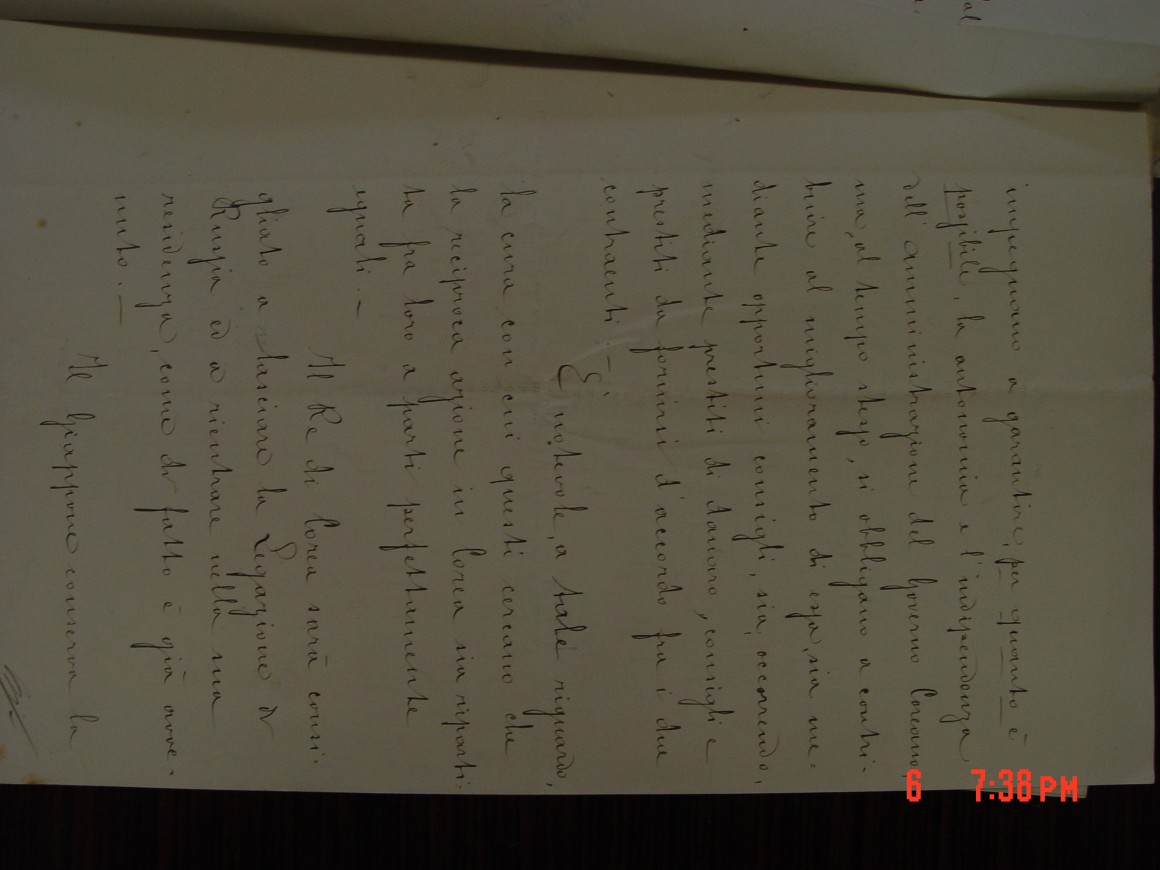 impegnano a garantire, per quanto è
possibile, la autonomia e l'indipendenza
dell'amministrazione del Governo Coreano
ma, al tempo stesso, si obbligano a contri-
buire al miglioramento di essa, sia me-
diante opportuni consigli, sia, occorrendo,
mediante prestiti di danaro, consigli e
prestiti da fornirsi d'accordo fra i due
contraenti. —
È notevole, a tale riguardo,
la cura con cui questi cercano che
la reciproca azione in Corea sia riparti-
ta fra loro a parti perfettamente
eguali. —
Il Re di Corea sarà consi-
gliato a rilasciare la Legazione di
Russia ed a rientrare nella sua
residenza, come di fatto è già avve-
nuto. —
Il Giappone conserva la
6 7:38 PM